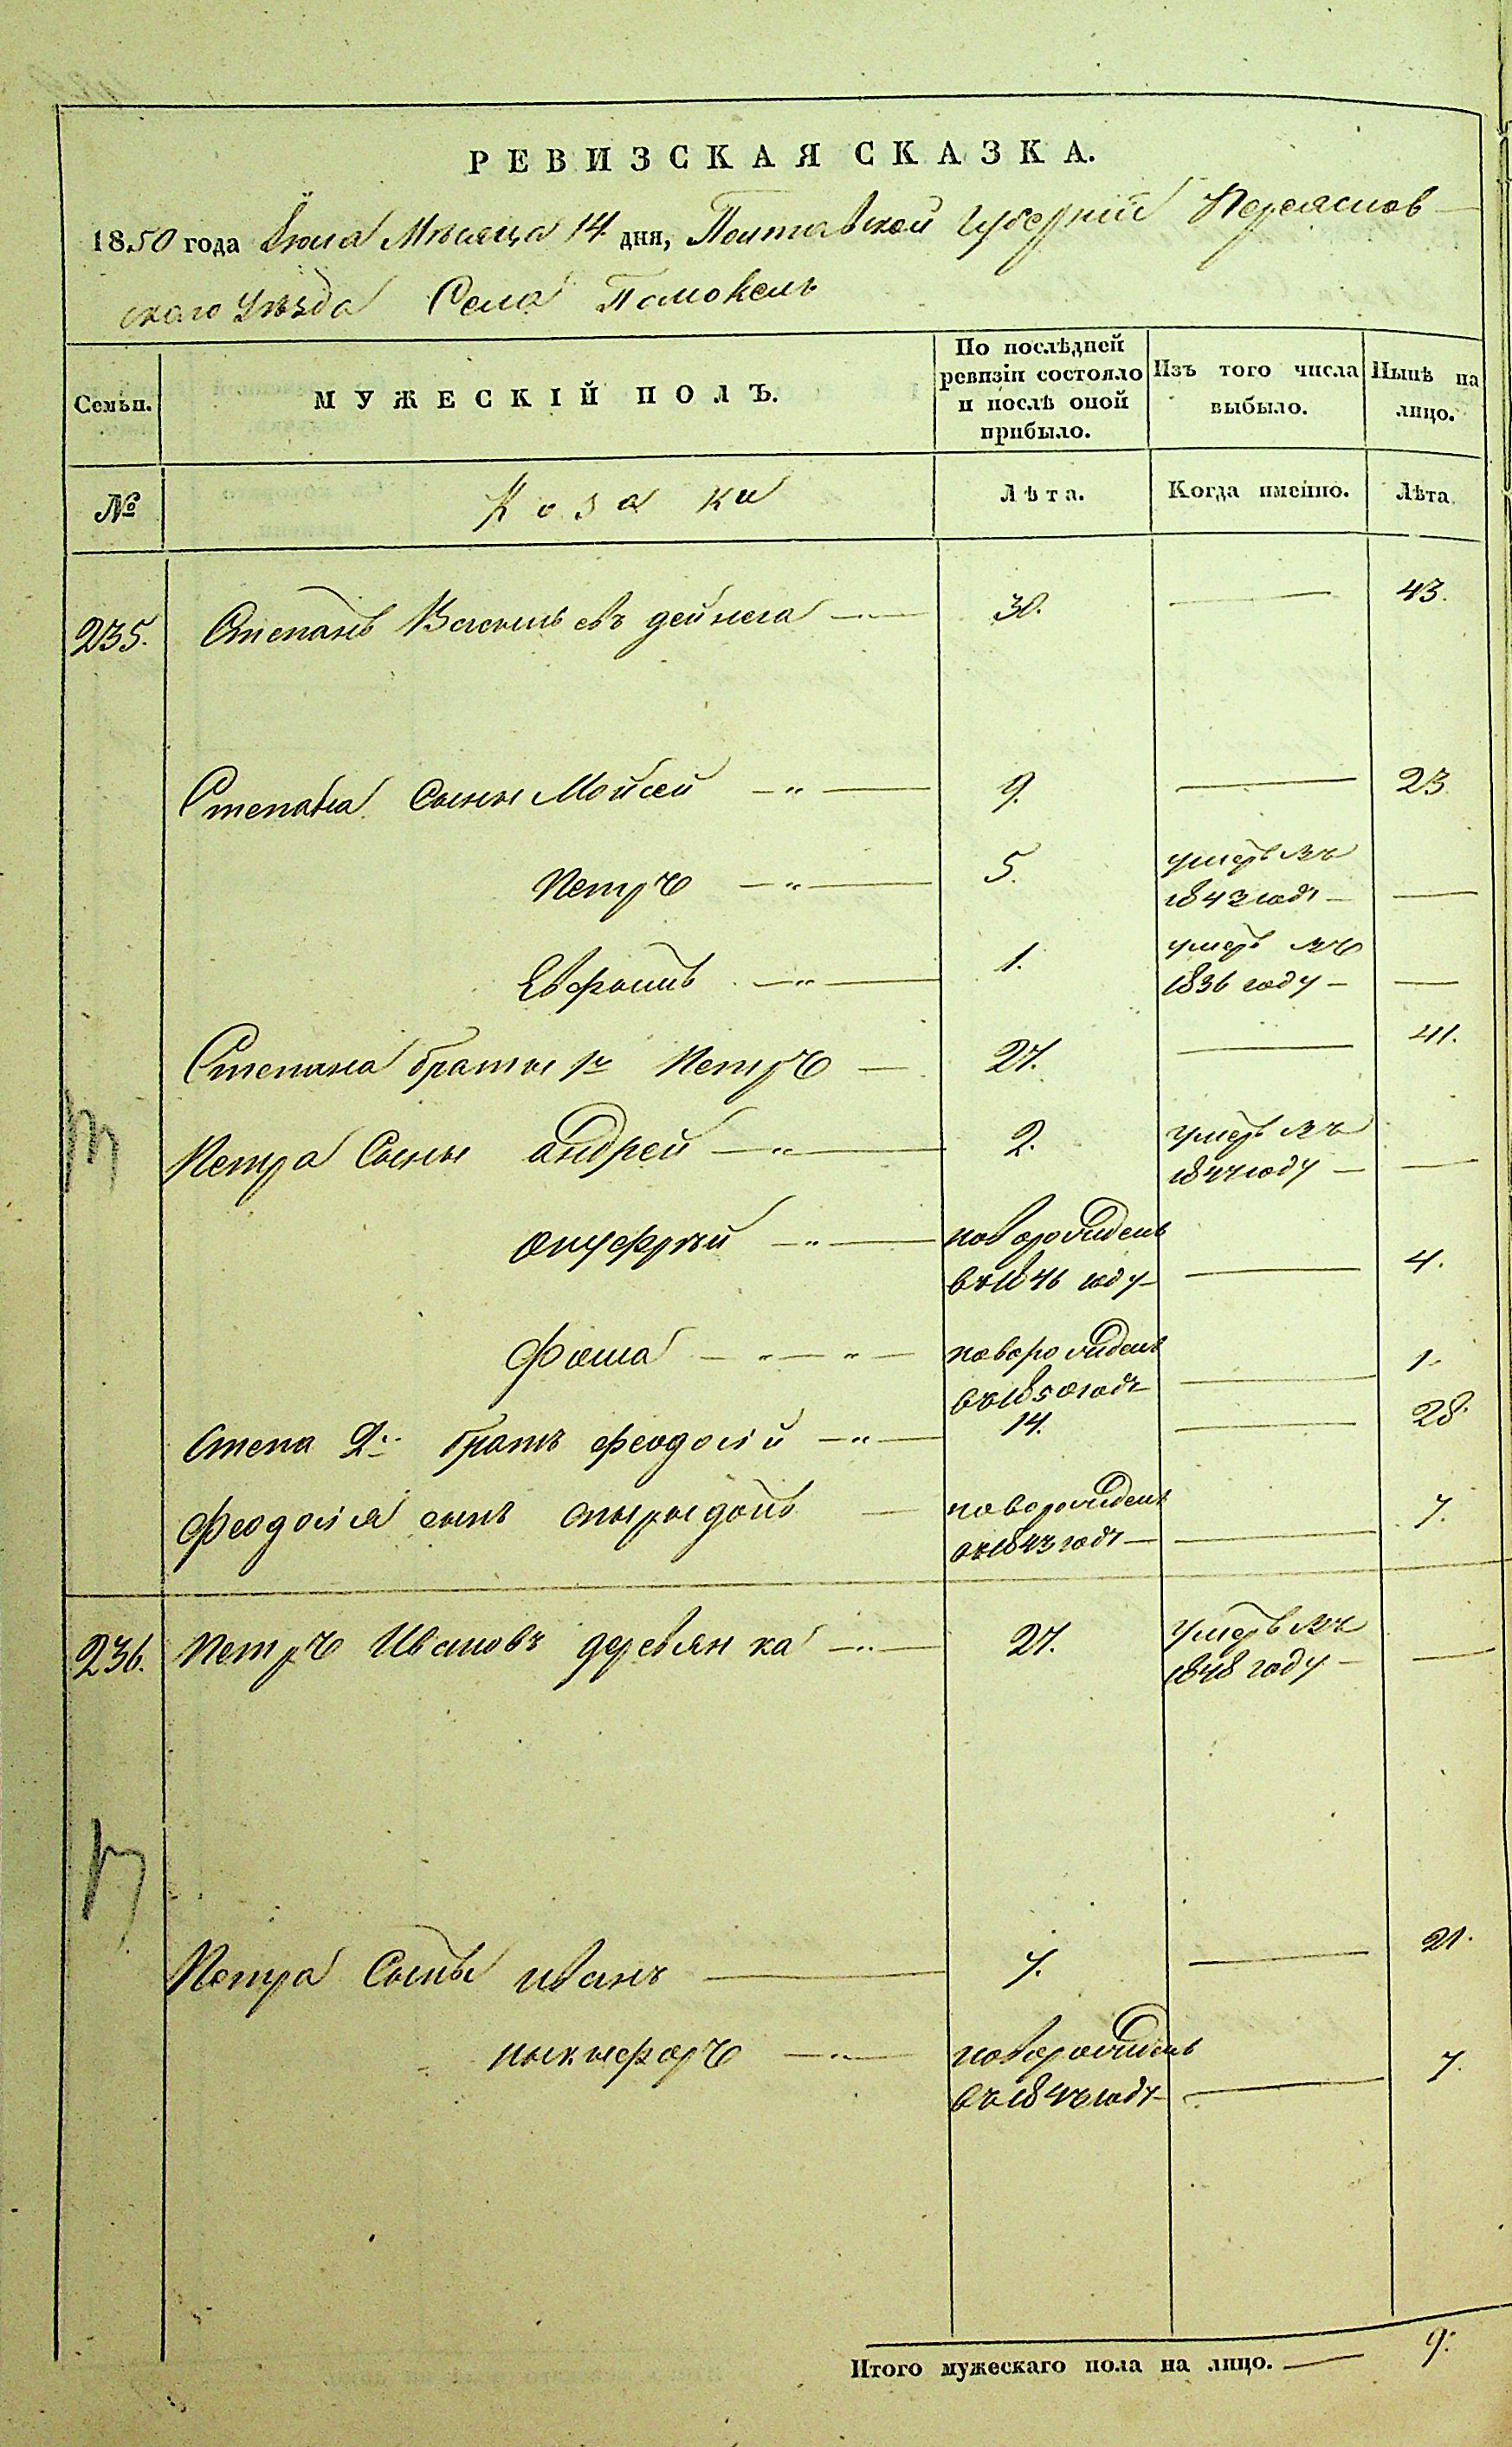 РЕВИЗСКАЯ СКАЗКА.
1850 года Июля Мѣсяца 14 дня, Полтавской Губерніи Переяслов-
скаго Уѣзда Села Помоклъ
Семьи. МУЖЕСКІЙ ПОЛЪ. По послѣдней ревизіи состояло и послѣ оной прибыло. Изъ того числа выбыло. Нынѣ на лицо.
№ Козаки Лѣта. Когда именно. Лѣта
235. Степанъ Васильевъ дейнега 30. 43.
Степана Сыны Мойсей 9. 23
Петръ 5. умеръ въ 1843 годѣ
Евфоимъ 1. умеръ въ 1836 году
Степана братья 1й Петръ 27. 41.
Петра Сыны андрей 2. умеръ въ 1844 году
онуфрій новорожденъ въ 1846 году 4.
Фома новорожденъ въ 1850 годѣ 1.
Степа 2й братъ феодосій 14. 28.
Феодосія сынъ спырыдонъ новорожденъ въ 1843 годѣ 7.
236. Петръ Ивановъ деревянка 27. умеръ въ 1848 году
Петра Сыны иванъ 7. 21.
ныкыфоръ новорожденъ въ 1843 годѣ 7.
Итого мужескаго пола на лицо. 9.